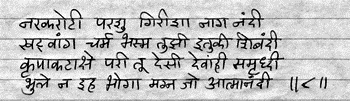 नरकरोटी परशु गिरीजा नाग नंदी
खट्वांग चर्म भस्म तुझी इतुकी शिबंदी
कृपाकटाक्षे परी तू देसी देवांही समृध्दी
भुले न इह भोगा मग्न जो आत्मानंदी ॥८॥